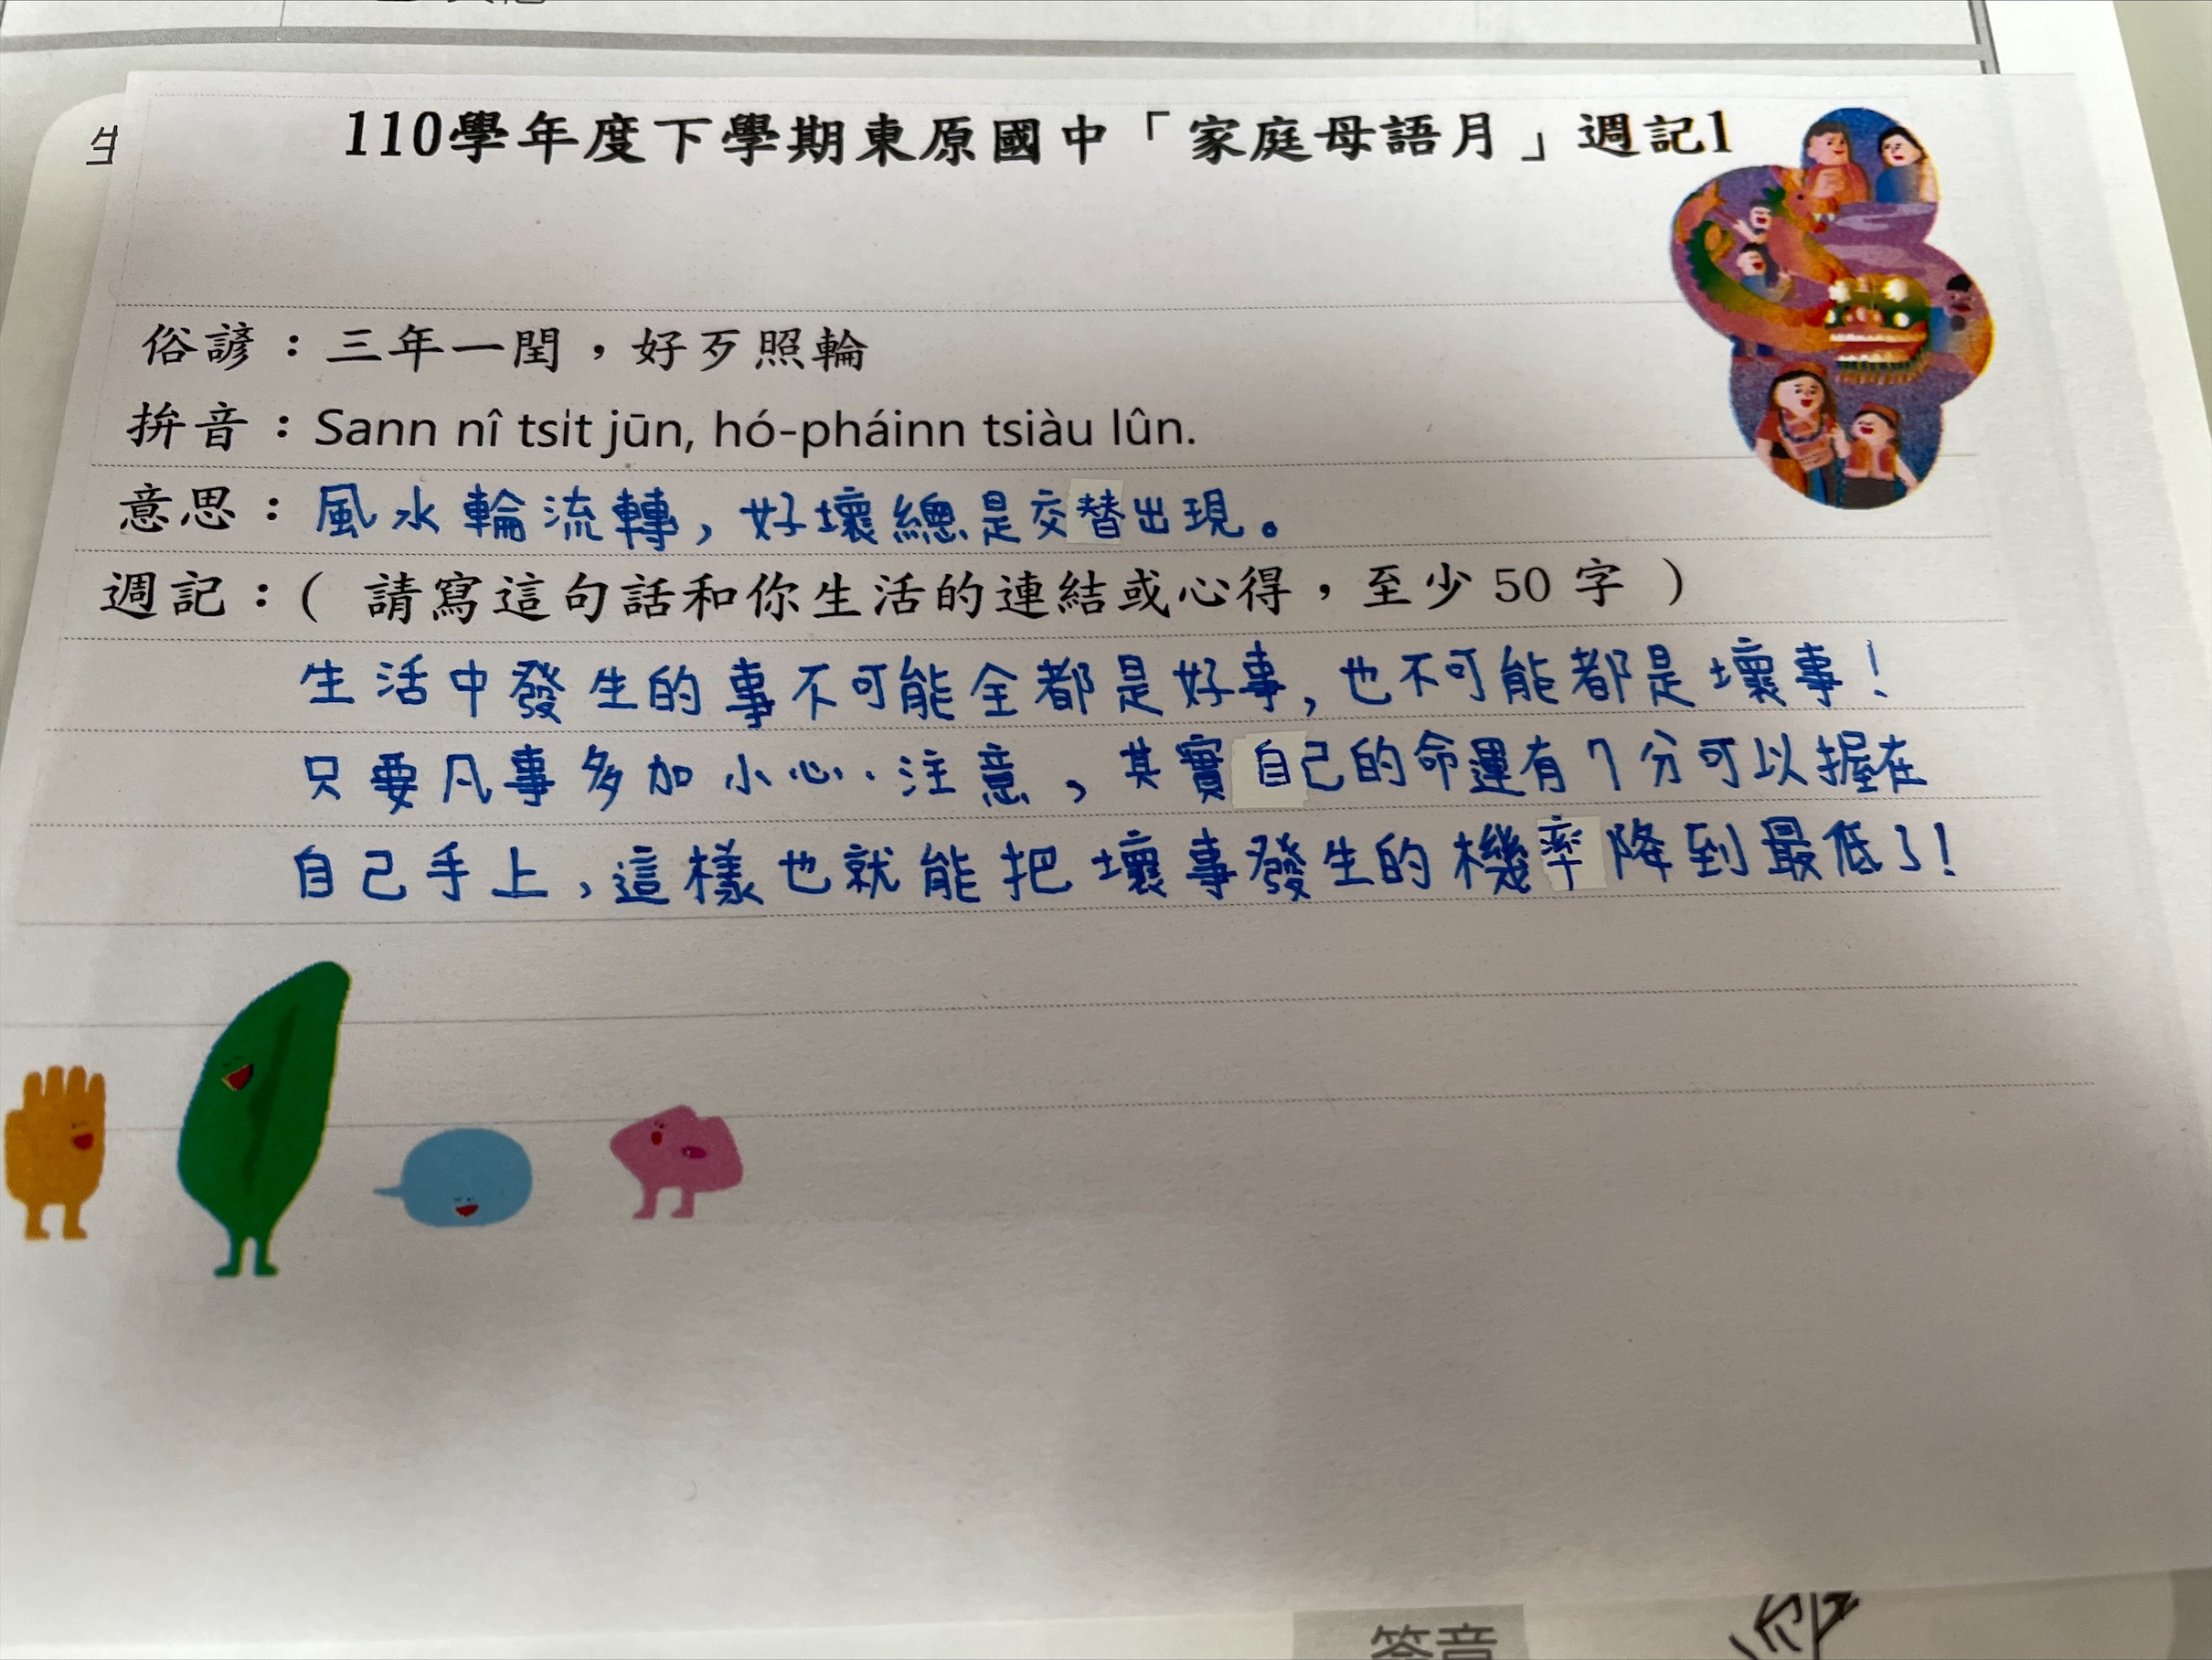 110學年度下學期東原國中「家庭母語月」週記1
俗諺：三年一閏，好歹照輪
拚音：Sann nî tsi̍t jūn, hó-pháinn tsiàu lûn.
意思：風水輪流轉，好壞總是交替出現。
週記：( 請寫這句話和你生活的連結或心得，至少 50 字 )
生活中發生的事不可能全都是好事，也不可能都是壞事！
只要凡事多加小心注意，其實自己的命運有7分可以握在
自己手上，這樣也就能把壞事發生的機率降到最低了！